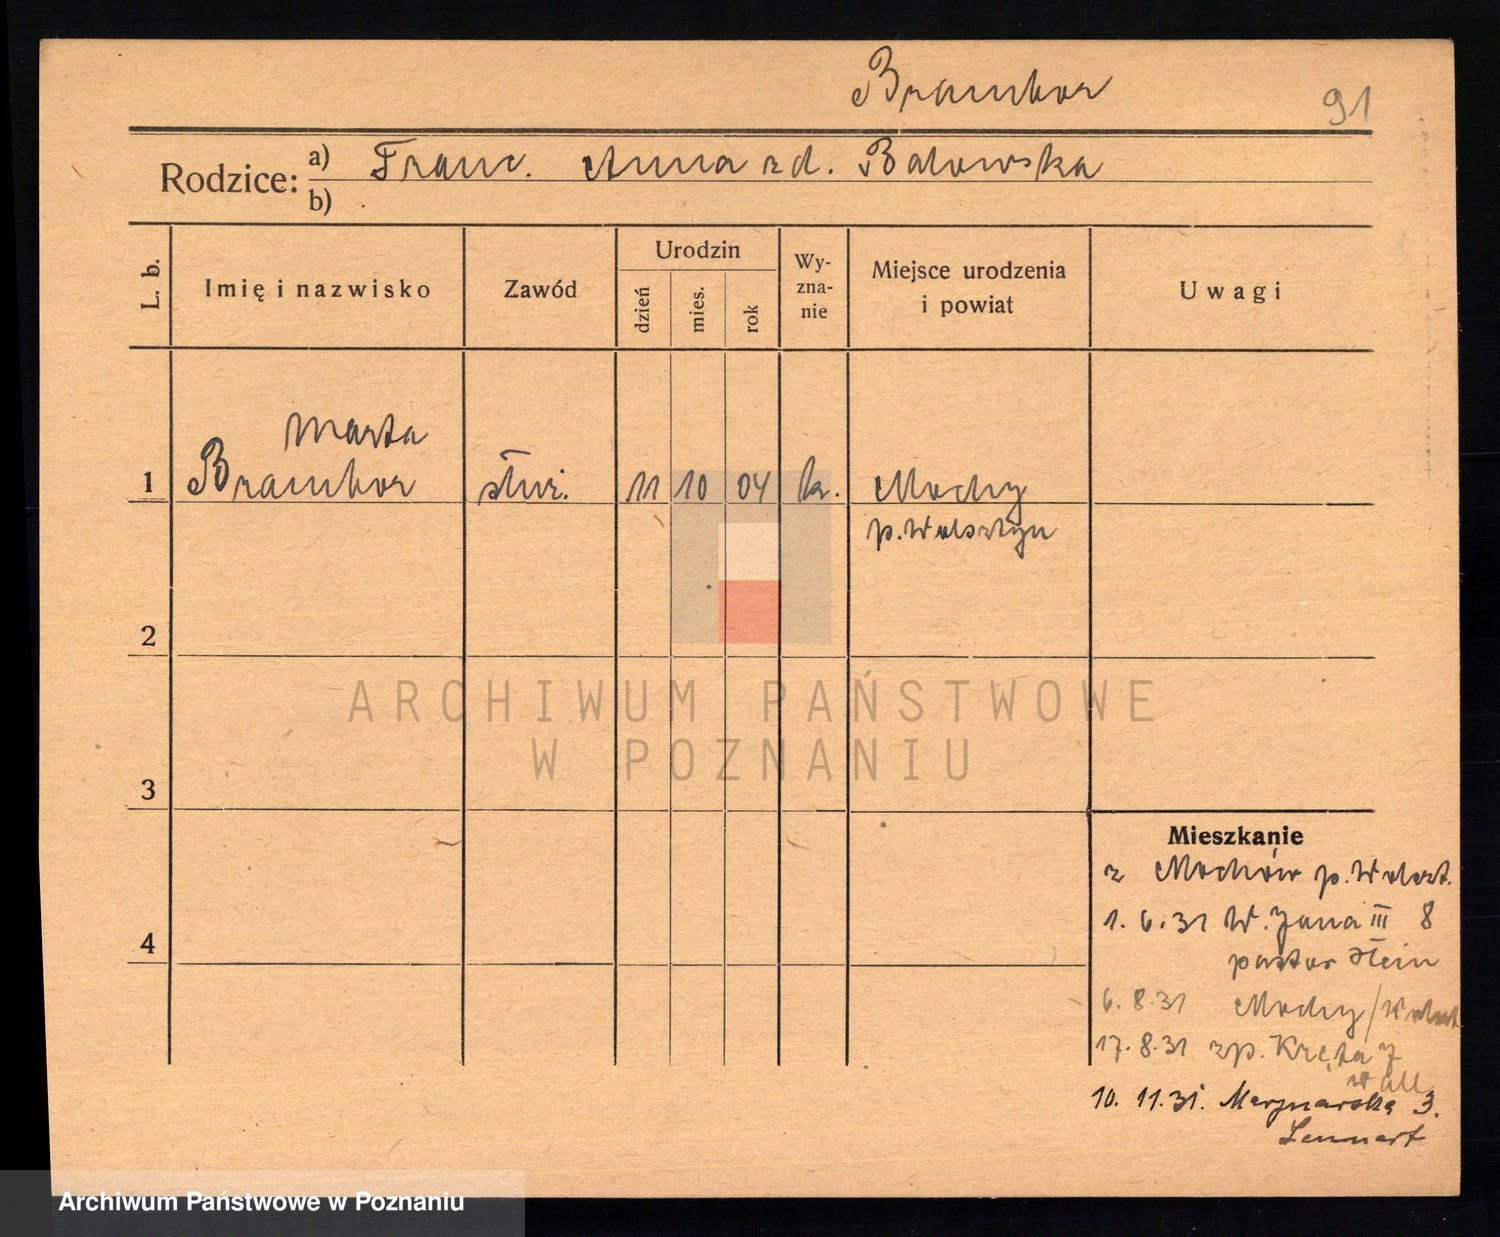 Brambor
91
Rodzice: a) Franc. Anna zd. Batowska
b)
L. b. Imię i nazwisko Zawód Urodzin dzień mies. rok Wyznanie Miejsce urodzenia i powiat Uwagi
Marta
1 Brambor służ. 11 10 04 k. Mochy
p. Wolsztyn
2
3
4
Mieszkanie
z Mochów p. Wolszt.
1. 6. 31 W. Jana III 8
pastor Stein
6. 8. 31 Mochy / Wolszt
17. 8. 31 zp. Kręta 7
10. 11. 31. Marynarska 3.
Lennart
ARCHIWUM PAŃSTWOWE
W POZNANIU
Archiwum Państwowe w Poznaniu